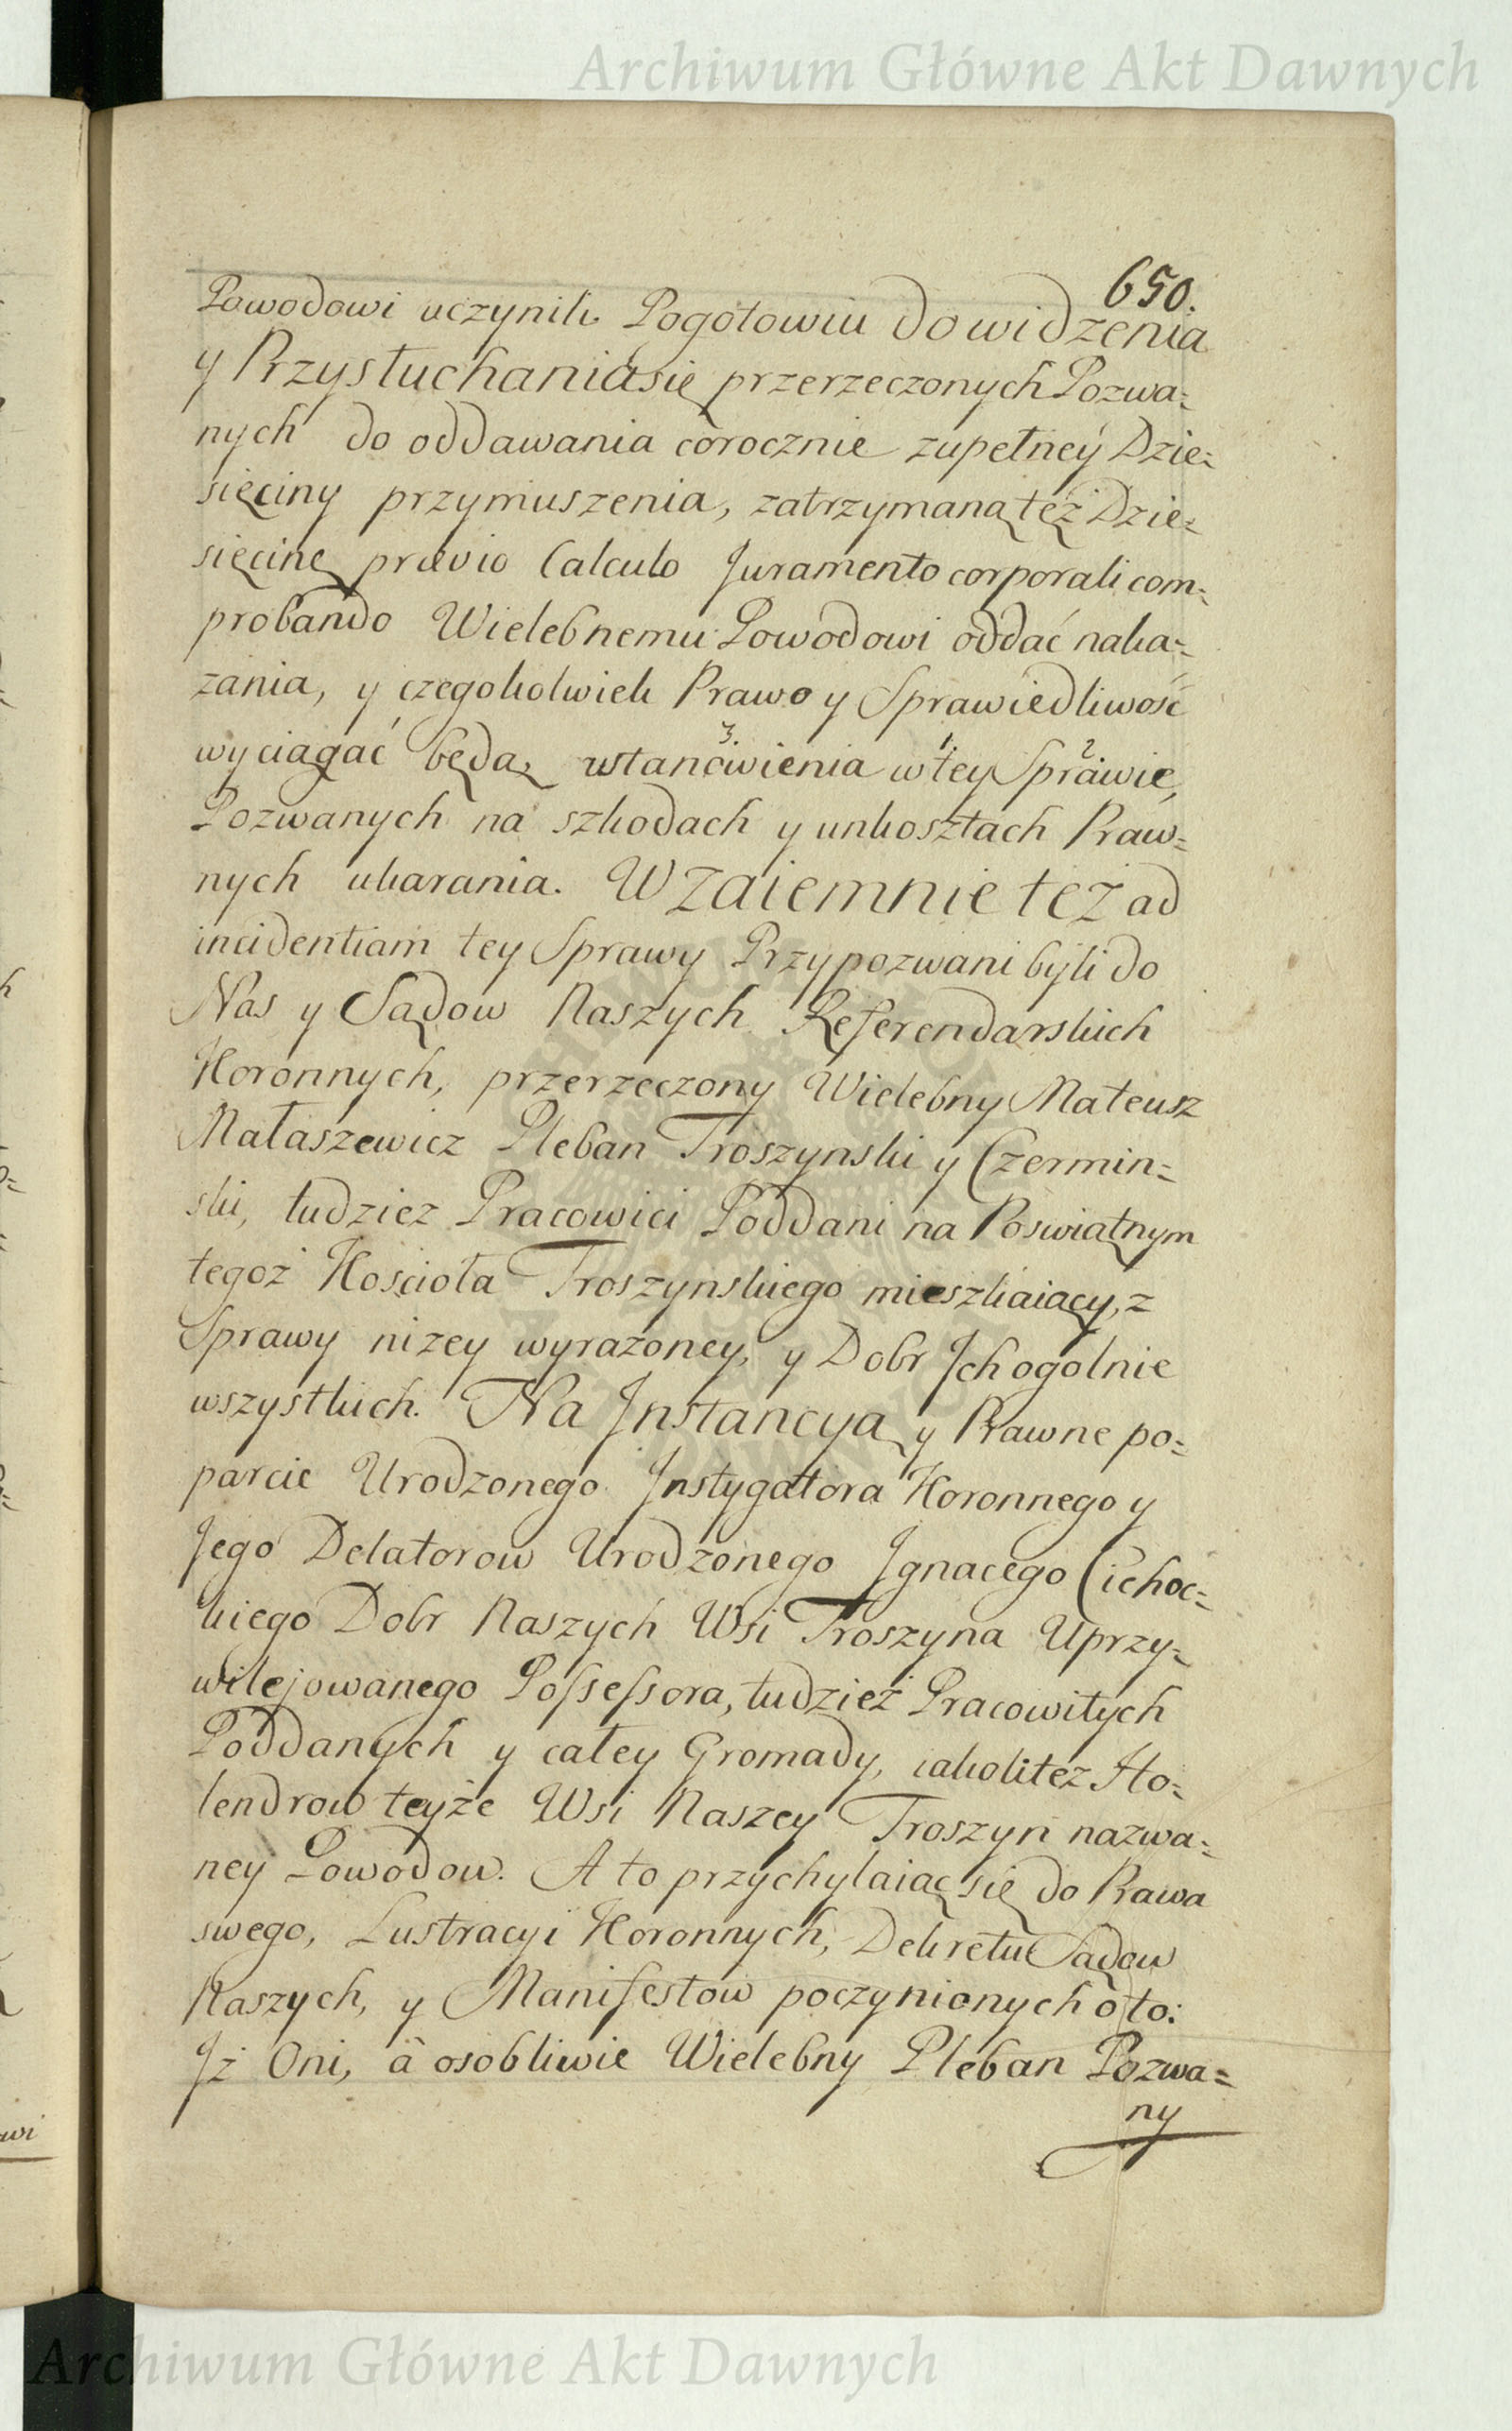 Archiwum Główne Akt Dawnych
650.
Powodowi uczynili. Pogotowiu do widzenia
y Przysłuchania się przerzeczonych Pozwa=
nych do oddawania corocznie zupełney Dzie=
sięciny przymuszenia, zatrzymaną też Dzie=
sięcinę prævio Calculo Juramento corporali com=
probando Wielebnemu Powodowi oddać naka=
zania, y czegokolwiek Prawo y Sprawiedliwość
3 1 2
wyciągać będą, ustanowienia w tey Sprawie,
Pozwanych na szkodach y unkosztach Praw=
nych ukarania. Wzaiemnie też ad
incidentiam tey Sprawy Przypozwani byli do
Nas y Sądow Naszych Referendarskich
Koronnych, przerzeczony Wielebny Mateusz
Małaszewicz Pleban Troszynski y Czermin=
ski, tudziez Pracowici Poddani na Poswiątnym
tegoż Kościoła Troszynskiego mieszkaiący, z
Sprawy nizey wyrażoney, y Dobr Jch ogolnie
wszystkich. Na Jnstancyą y Prawne po=
parcie Urodzonego Jnstygatora Koronnego y
Jego Delatorow Urodzonego Jgnacego Cichoc=
kiego Dobr Naszych Wsi Troszyna Uprzy=
wilejowanego Possessora, tudzież Pracowitych
Poddanych y całey Gromady, iakoliteż Ho=
lendrow teyże Wsi Naszey Troszyn nazwa=
ney Powodow. A to przychylaiąc się do Prawa
swego, Lustracyi Koronnych, Dekretu Sądow
Naszych, y Manifestow poczynionych o to:
Jż Oni, à osobliwie Wielebny Pleban Pozwa=
ny
wi
Archiwum Główne Akt Dawnych